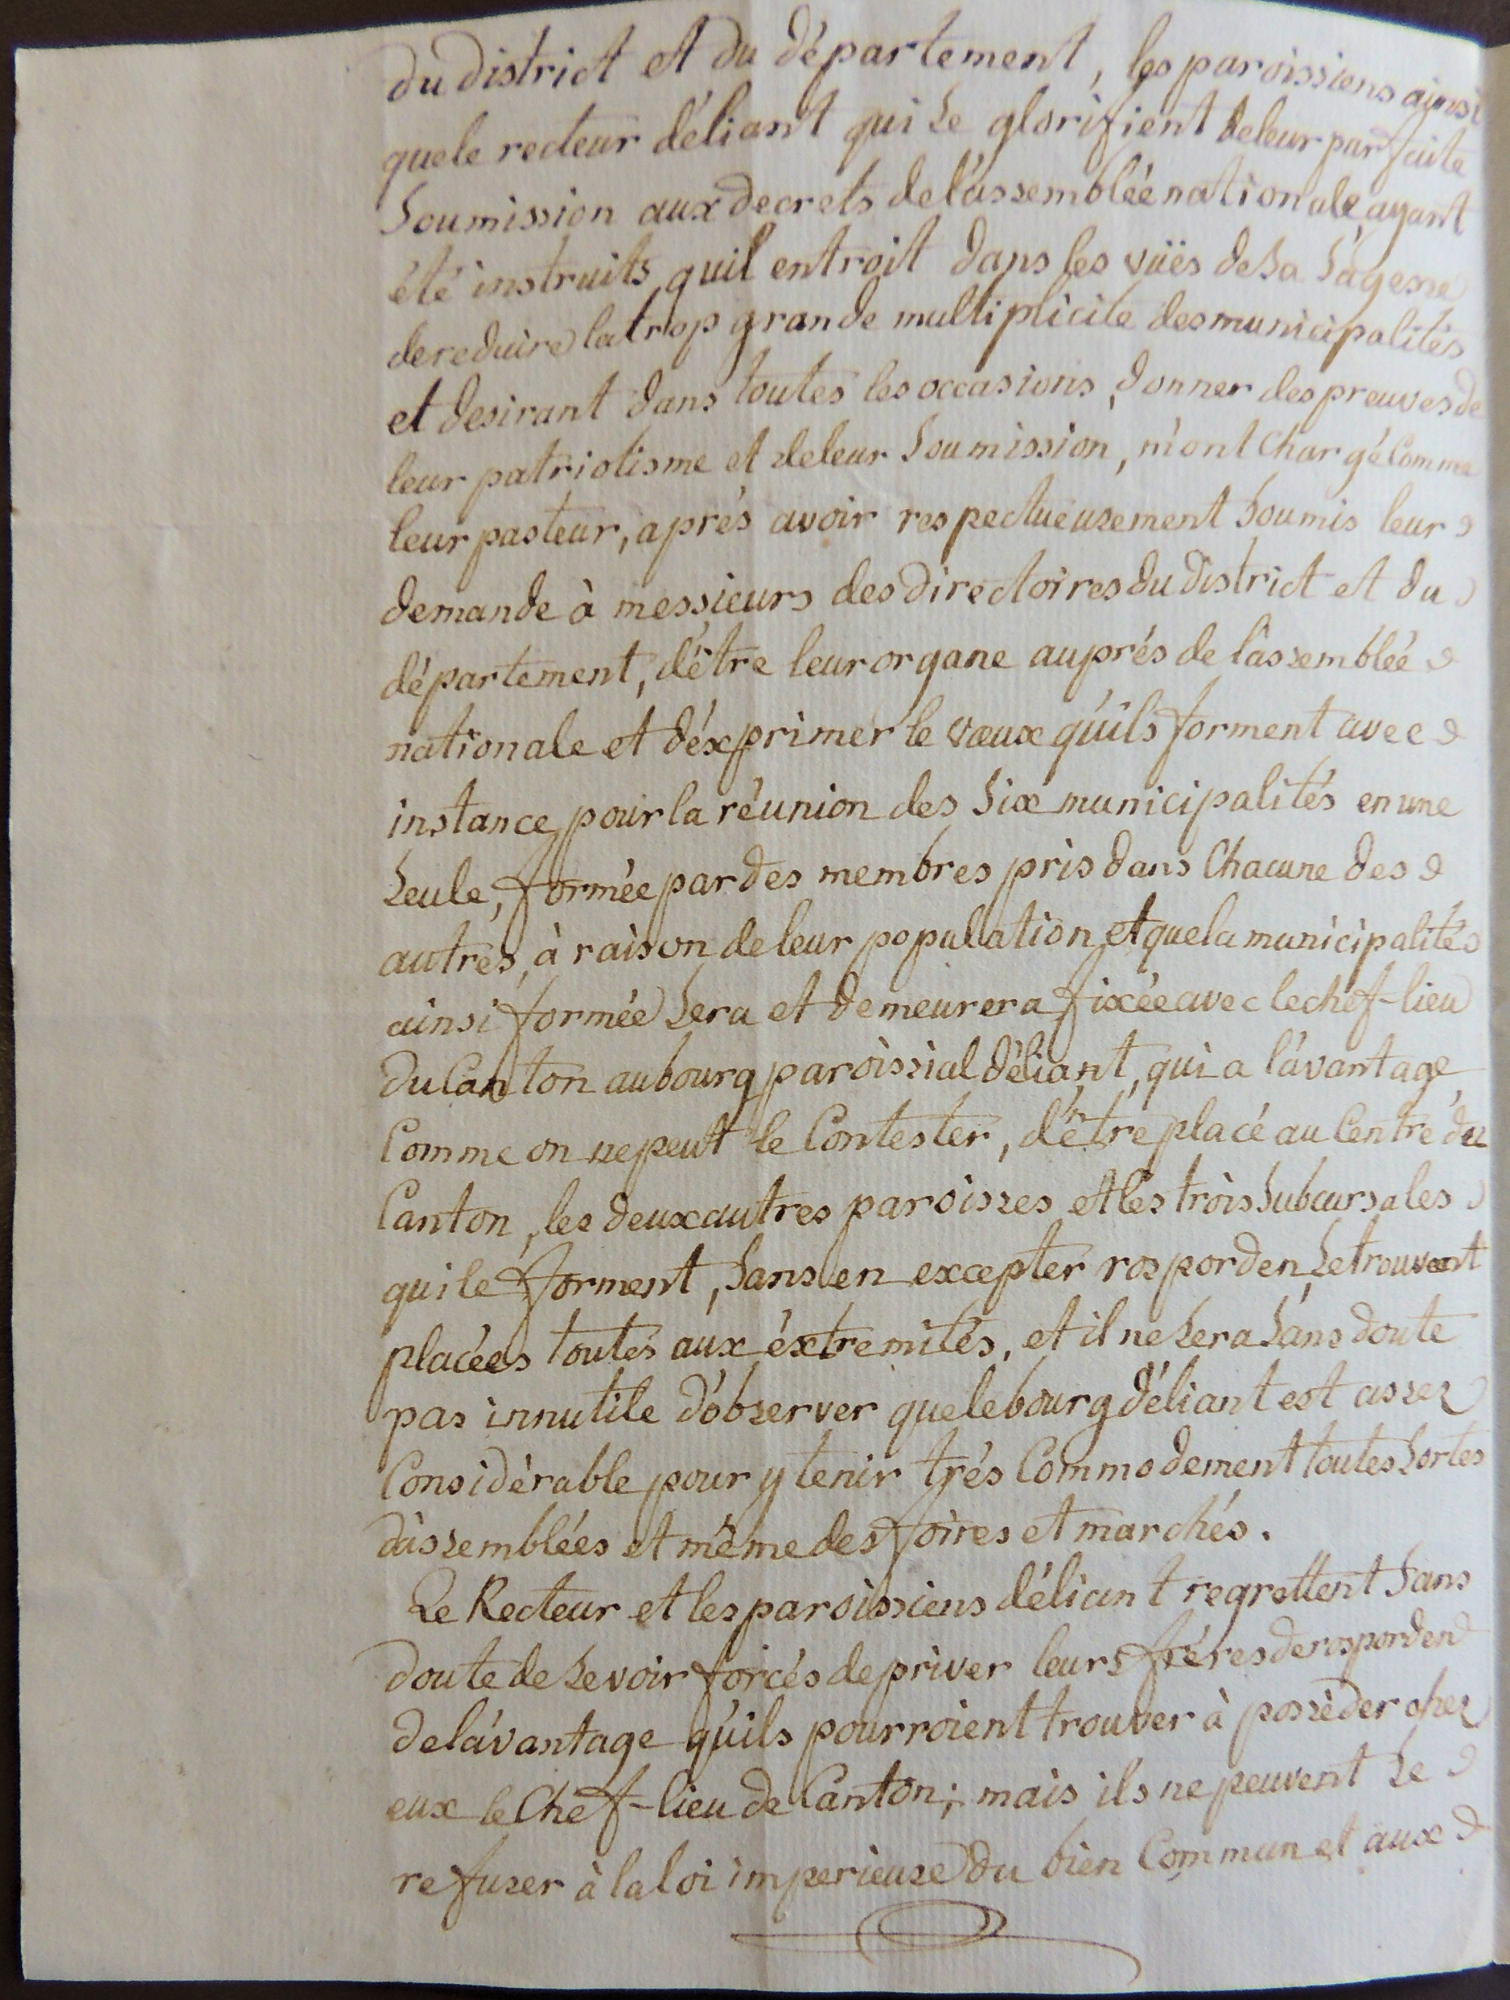 du district et du département, les paroissiens ainsi
que le recteur d'éliant qui se glorifient de leur parfaite
Soumission aux decrets de l'assemblée nationale, ayant
été instruits qu'il entroit dans les vües de sa Sagesse
de reduire la trop grande multiplicité des municipalités
et desirant dans toutes les occasions, donner des preuves de
leur patriotisme et de leur Soumission, m'ont Chargé Comme
leur pasteur, aprés avoir respectueusement Soumis leur
demande à messieurs des directoires du district et du
département, d'être leur organe auprés de l'assemblée
nationale et d'éxprimer le vœux qu'ils forment avec
instance pour la réunion des Six municipalités en une
Seule, formée par des membres pris dans Chacune des
autres, à raison de leur population et que la municipalité
ainsi formée Sera et demeurera fixée avec le chef-lieu
du Canton au bourg paroissial d'éliant, qui a l'avantage
Comme on ne peut le Contester, d'être placé au Centre du
Canton, les deux autres paroisses et les trois Subcursales
qui le forment, Sans en excepter rosporden, Se trouvent
placées toutes aux éxtremités, et il ne Sera Sans doute
pas innutile d'observer que le bourg d'éliant est assez
Considèrable pour y tenir trés Commodement toutes Sortes
d'assemblées et même des foires et marchés.
Le Recteur et les paroissiens d'éliant regrettent Sans
doute de Se voir forcés de priver leurs fréres de rosporden
de l'avantage qu'ils pourroient trouver à possèder chez
eux le Chef-lieu de Canton; mais ils ne peuvent Se
refuser à la loi imperieuse du bien Commun et aux